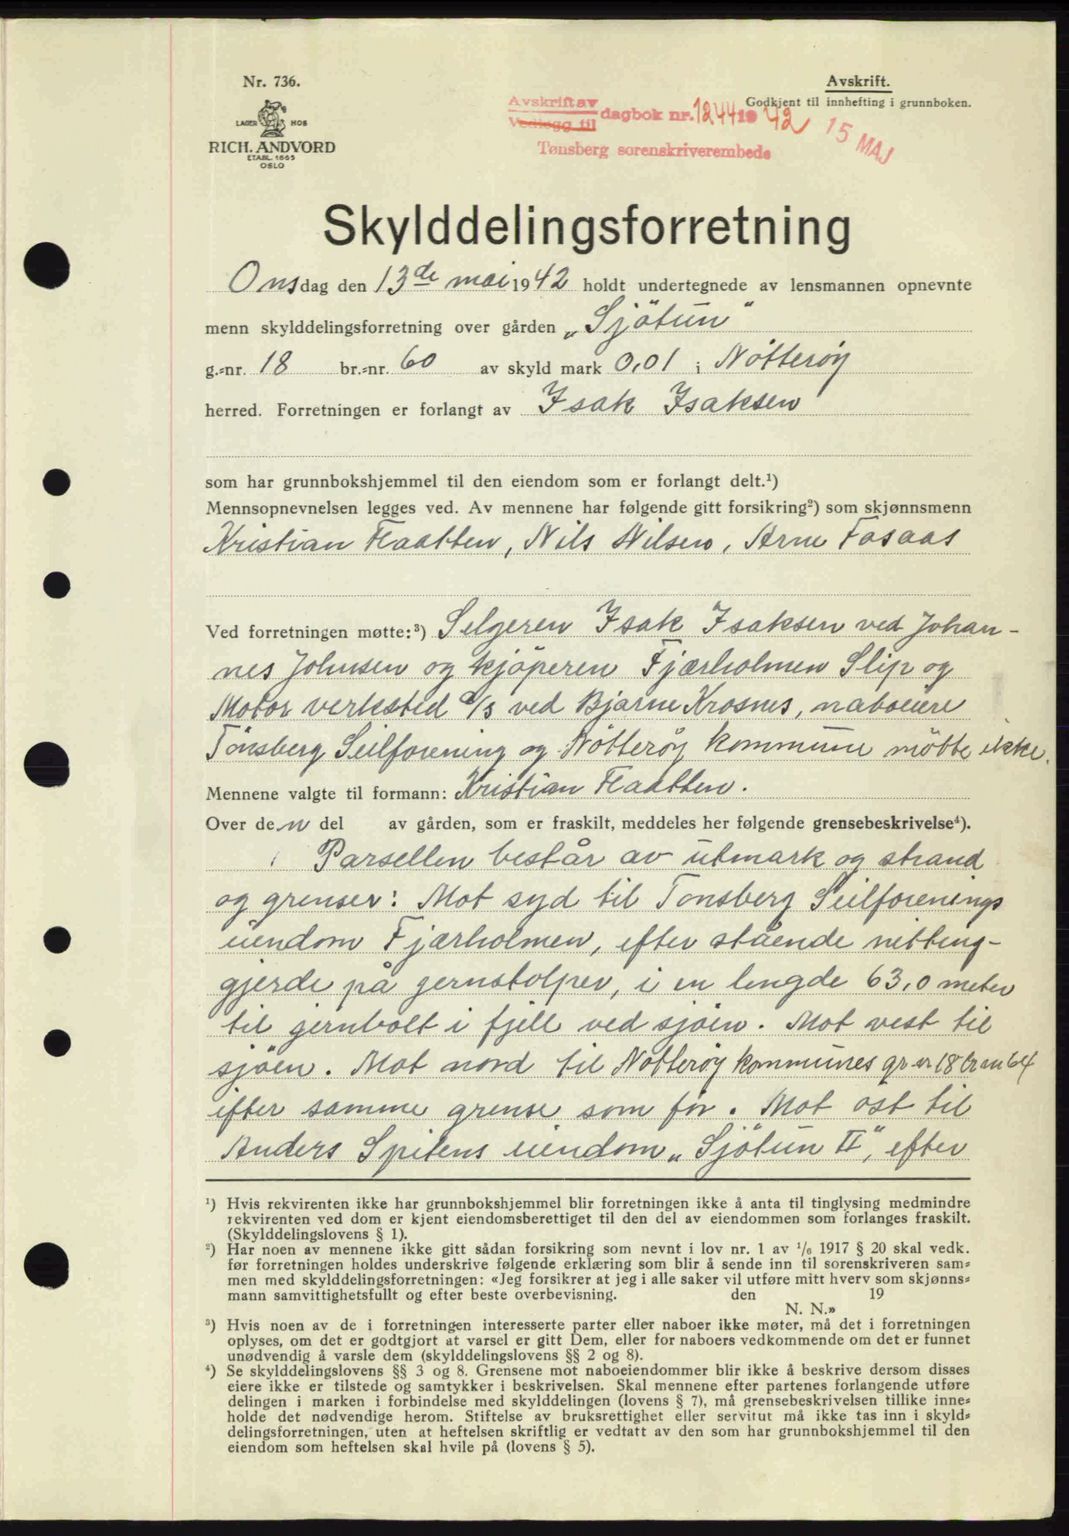 Nr. 736.
LAGER HOS
RICH. ANDVORD
ETABL. 1865
OSLO
Avskrift.
Godkjent til innhefting i grunnboken.
Avskrift av
Vedlegg til
dagbok nr. 1244 1942
Tønsberg sorenskriverembede
15 MAJ
Skylddelingsforretning
Onsdag den 13de mai 1942 holdt undertegnede av lensmannen opnevnte
menn skylddelingsforretning over gården „Sjötun"
g.-nr. 18 br.-nr. 60 av skyld mark 0,01 i Nötterøy
herred. Forretningen er forlangt av Isak Isaksen
som har grunnbokshjemmel til den eiendom som er forlangt delt.¹)
Mennsopnevnelsen legges ved. Av mennene har følgende gitt forsikring²) som skjønnsmenn
Kristian Flaatten, Nils Nilsen, Arne Fosaas
Ved forretningen møtte:³) Selgeren Isak Isaksen ved Johan-
nes Johnsen og kjöperen Fjærholmen Slip og
Motor verksted A/S ved Bjarne Krosnes, naboeiere
Tönsberg Seilforening og Nötterøy kommune mötte ikke.
Mennene valgte til formann: Kristian Flaatten.
Over den del av gården, som er fraskilt, meddeles her følgende grensebeskrivelse⁴).
Parsellen består av utmark og strand
og grenser: Mot syd til Tönsberg Seilforenings
eiendom Fjærholmen, efter stående netting-
gjerde på jernstolper, i en lengde 63,0 meter
til jernbolt i fjell ved sjöen. Mot vest til
sjöen. Mot nord til Nötteröy kommunes gr nr 18 br nr 64
efter samme grense som för. Mot öst til
Anders Spitens eiendom „Sjötun II", efter
¹) Hvis rekvirenten ikke har grunnbokshjemmel blir forretningen ikke å anta til tinglysing medmindre
rekvirenten ved dom er kjent eiendomsberettiget til den del av eiendommen som forlanges fraskilt.
(Skylddelingslovens § 1).
²) Har noen av mennene ikke gitt sådan forsikring som nevnt i lov nr. 1 av 1/6 1917 § 20 skal vedk.
før forretningen holdes underskrive følgende erklæring som blir å sende inn til sorenskriveren sam=
men med skylddelingsforretningen: «Jeg forsikrer at jeg i alle saker vil utføre mitt hverv som skjønns=
mann samvittighetsfullt og efter beste overbevisning. den 19
N. N.»
³) Hvis noen av de i forretningen interesserte parter eller naboer ikke møter, må det i forretningen
oplyses, om det er godtgjort at varsel er gitt Dem, eller for naboers vedkommende om det er funnet
unødvendig å varsle dem (skylddelingslovens §§ 2 og 8).
⁴) Se skylddelingslovens §§ 3 og 8. Grensene mot naboeiendommer blir ikke å beskrive dersom disses
eiere ikke er tilstede og samtykker i beskrivelsen. Skal mennene efter partenes forlangende utføre
delingen i marken i forbindelse med skylddelingen (lovens § 7), må grensebeskrivelsen tillike inne=
holde det nødvendige herom. Stiftelse av bruksrettighet eller servitut må ikke tas inn i skyld=
delingsforretningen, uten at heftelsen skriftlig er vedtatt av den som har grunnbokshjemmel til den
eiendom som heftelsen skal hvile på (lovens § 5).